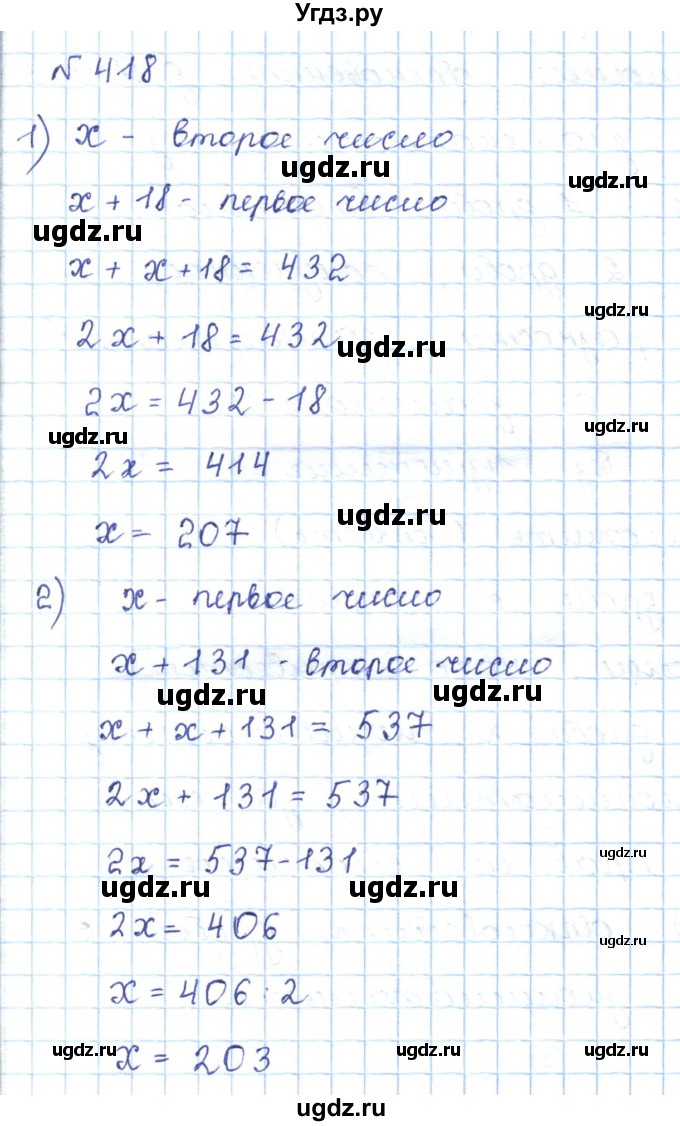 Угдз.ру
№ 418
1) x - второе число
ugdz.ru
ugdz.ru
x + 18 - первое число
ugdz.ru
x + x + 18 = 432
ugdz.ru
2x + 18 = 432
ugdz.ru
2x = 432 - 18
ugdz.ru
ugdz.ru
2x = 414
ugdz.ru
x = 207
2) x - первое число
x + 131 - второе число
ugdz.ru
ugdz.ru
x + x + 131 = 537
2x + 131 = 537
2x = 537 - 131
ugdz.ru
ugdz.ru
ugdz.ru
2x = 406
ugdz.ru
x = 406 : 2
ugdz.ru
x = 203
ugdz.ru
ugdz.ru
ugdz.ru